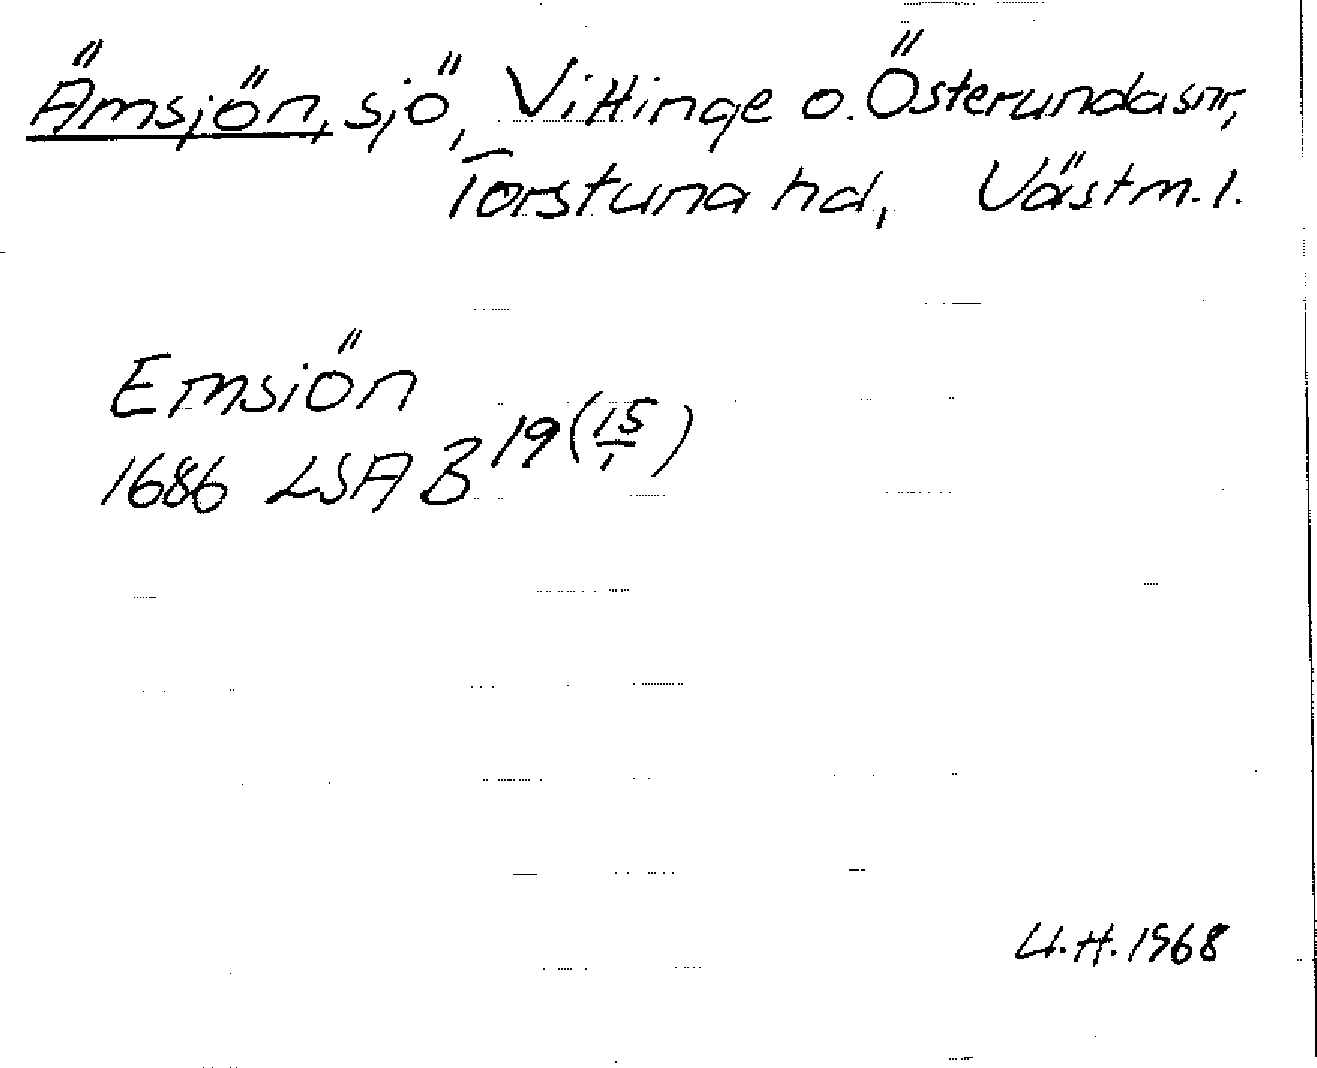 Ämsjön, sjö, Vittinge o. Österunda snr,
Torstuna hd, Västm. l.
Emsiön
1686 LSA B 19 (15/1)
U.H. 1968